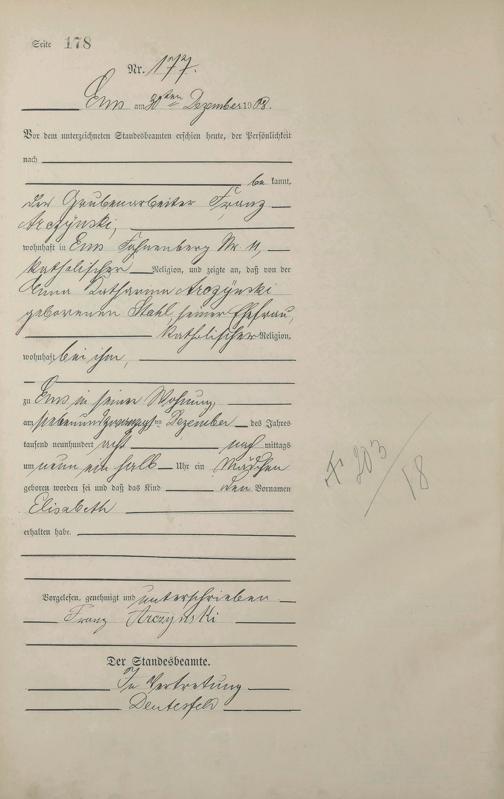 Seite 178
Nr. 177.
Ems am 30ten Dezember 1908.
Vor dem unterzeichneten Standesbeamten erschien heute, der Persönlichkeit
nach
be kannt,
der Grubenarbeiter Franz
Arczynski,
wohnhaft in Ems Fahnenberg Nr. 11,
katholischer Religion, und zeigte an, daß von der
Anna Catharina Arczÿnski
geborenen Stahl, seiner Ehefrau,
katholischer Religion,
wohnhaft bei ihm,
zu Ems in seiner Wohnung,
am siebenundzwanzigsten Dezember des Jahres
tausend neunhundert acht nach mittags
um neun ein halb Uhr ein Mädchen
geboren worden sei und daß das Kind den Vornamen
Elisabeth
erhalten habe.
Vorgelesen, genehmigt und unterschrieben
Franz Arczynski
Der Standesbeamte.
In Vertretung
203/18